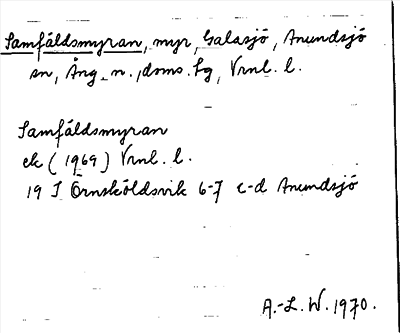 Samfäldsmyran, myr, Galasjö, Anundsjö
sn, Ång. n., doms. sg, Vrnl. l.
Samfäldsmyran
ek (1969) Vrnl. l.
19 I Örnsköldsvik 6-7 c-d Anundsjö
A.-L. W. 1970.